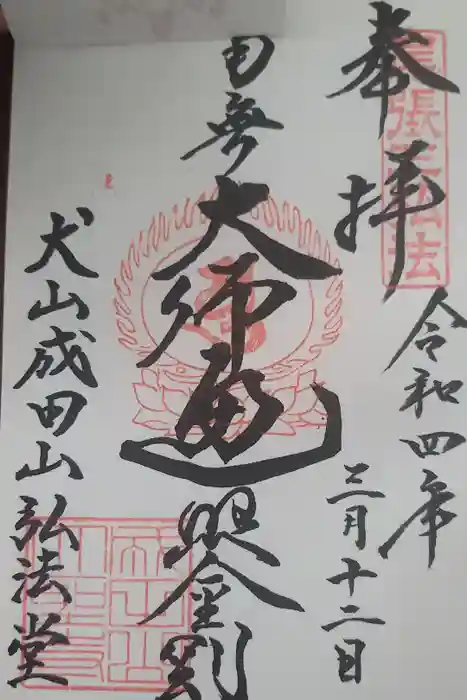 奉拝
尾張三弘法
令和四年
三月十二日
南無
大師遍
照金剛
犬山成田山弘法堂